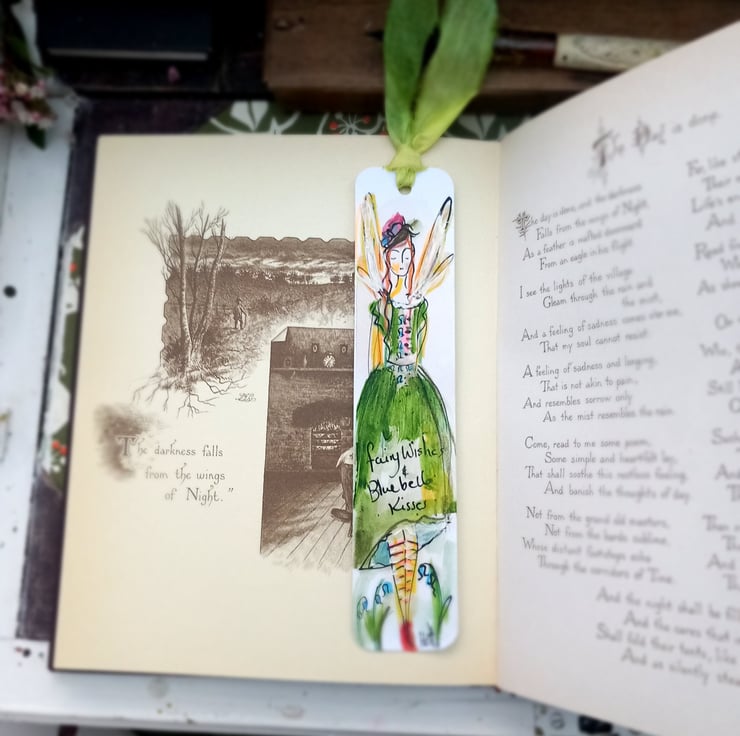 The darkness falls
from the wings
of Night."
fairy Wishes
&
Bluebell
Kisses
The Day is done,
The day is done, and the darkness
Falls from the wings of Night,
As a feather is wafted downward
From an eagle in his flight.
I see the lights of the village
Gleam through the rain and
the mist,
And a feeling of sadness comes o'er me,
That my soul cannot resist:
A feeling of sadness and longing,
That is not akin to pain,
And resembles sorrow only
As the mist resembles the rain.
Come, read to me some poem,
Some simple and heartfelt lay,
That shall soothe this restless feeling,
And banish the thoughts of day.
Not from the grand old masters,
Not from the bards sublime,
Whose distant footsteps echo
Through the corridors of Time.
And the night shall be fil
And the cares that
Shall fold their tents, like
And as silently stea
For, like st
Their m
Life's en
And
Read fr